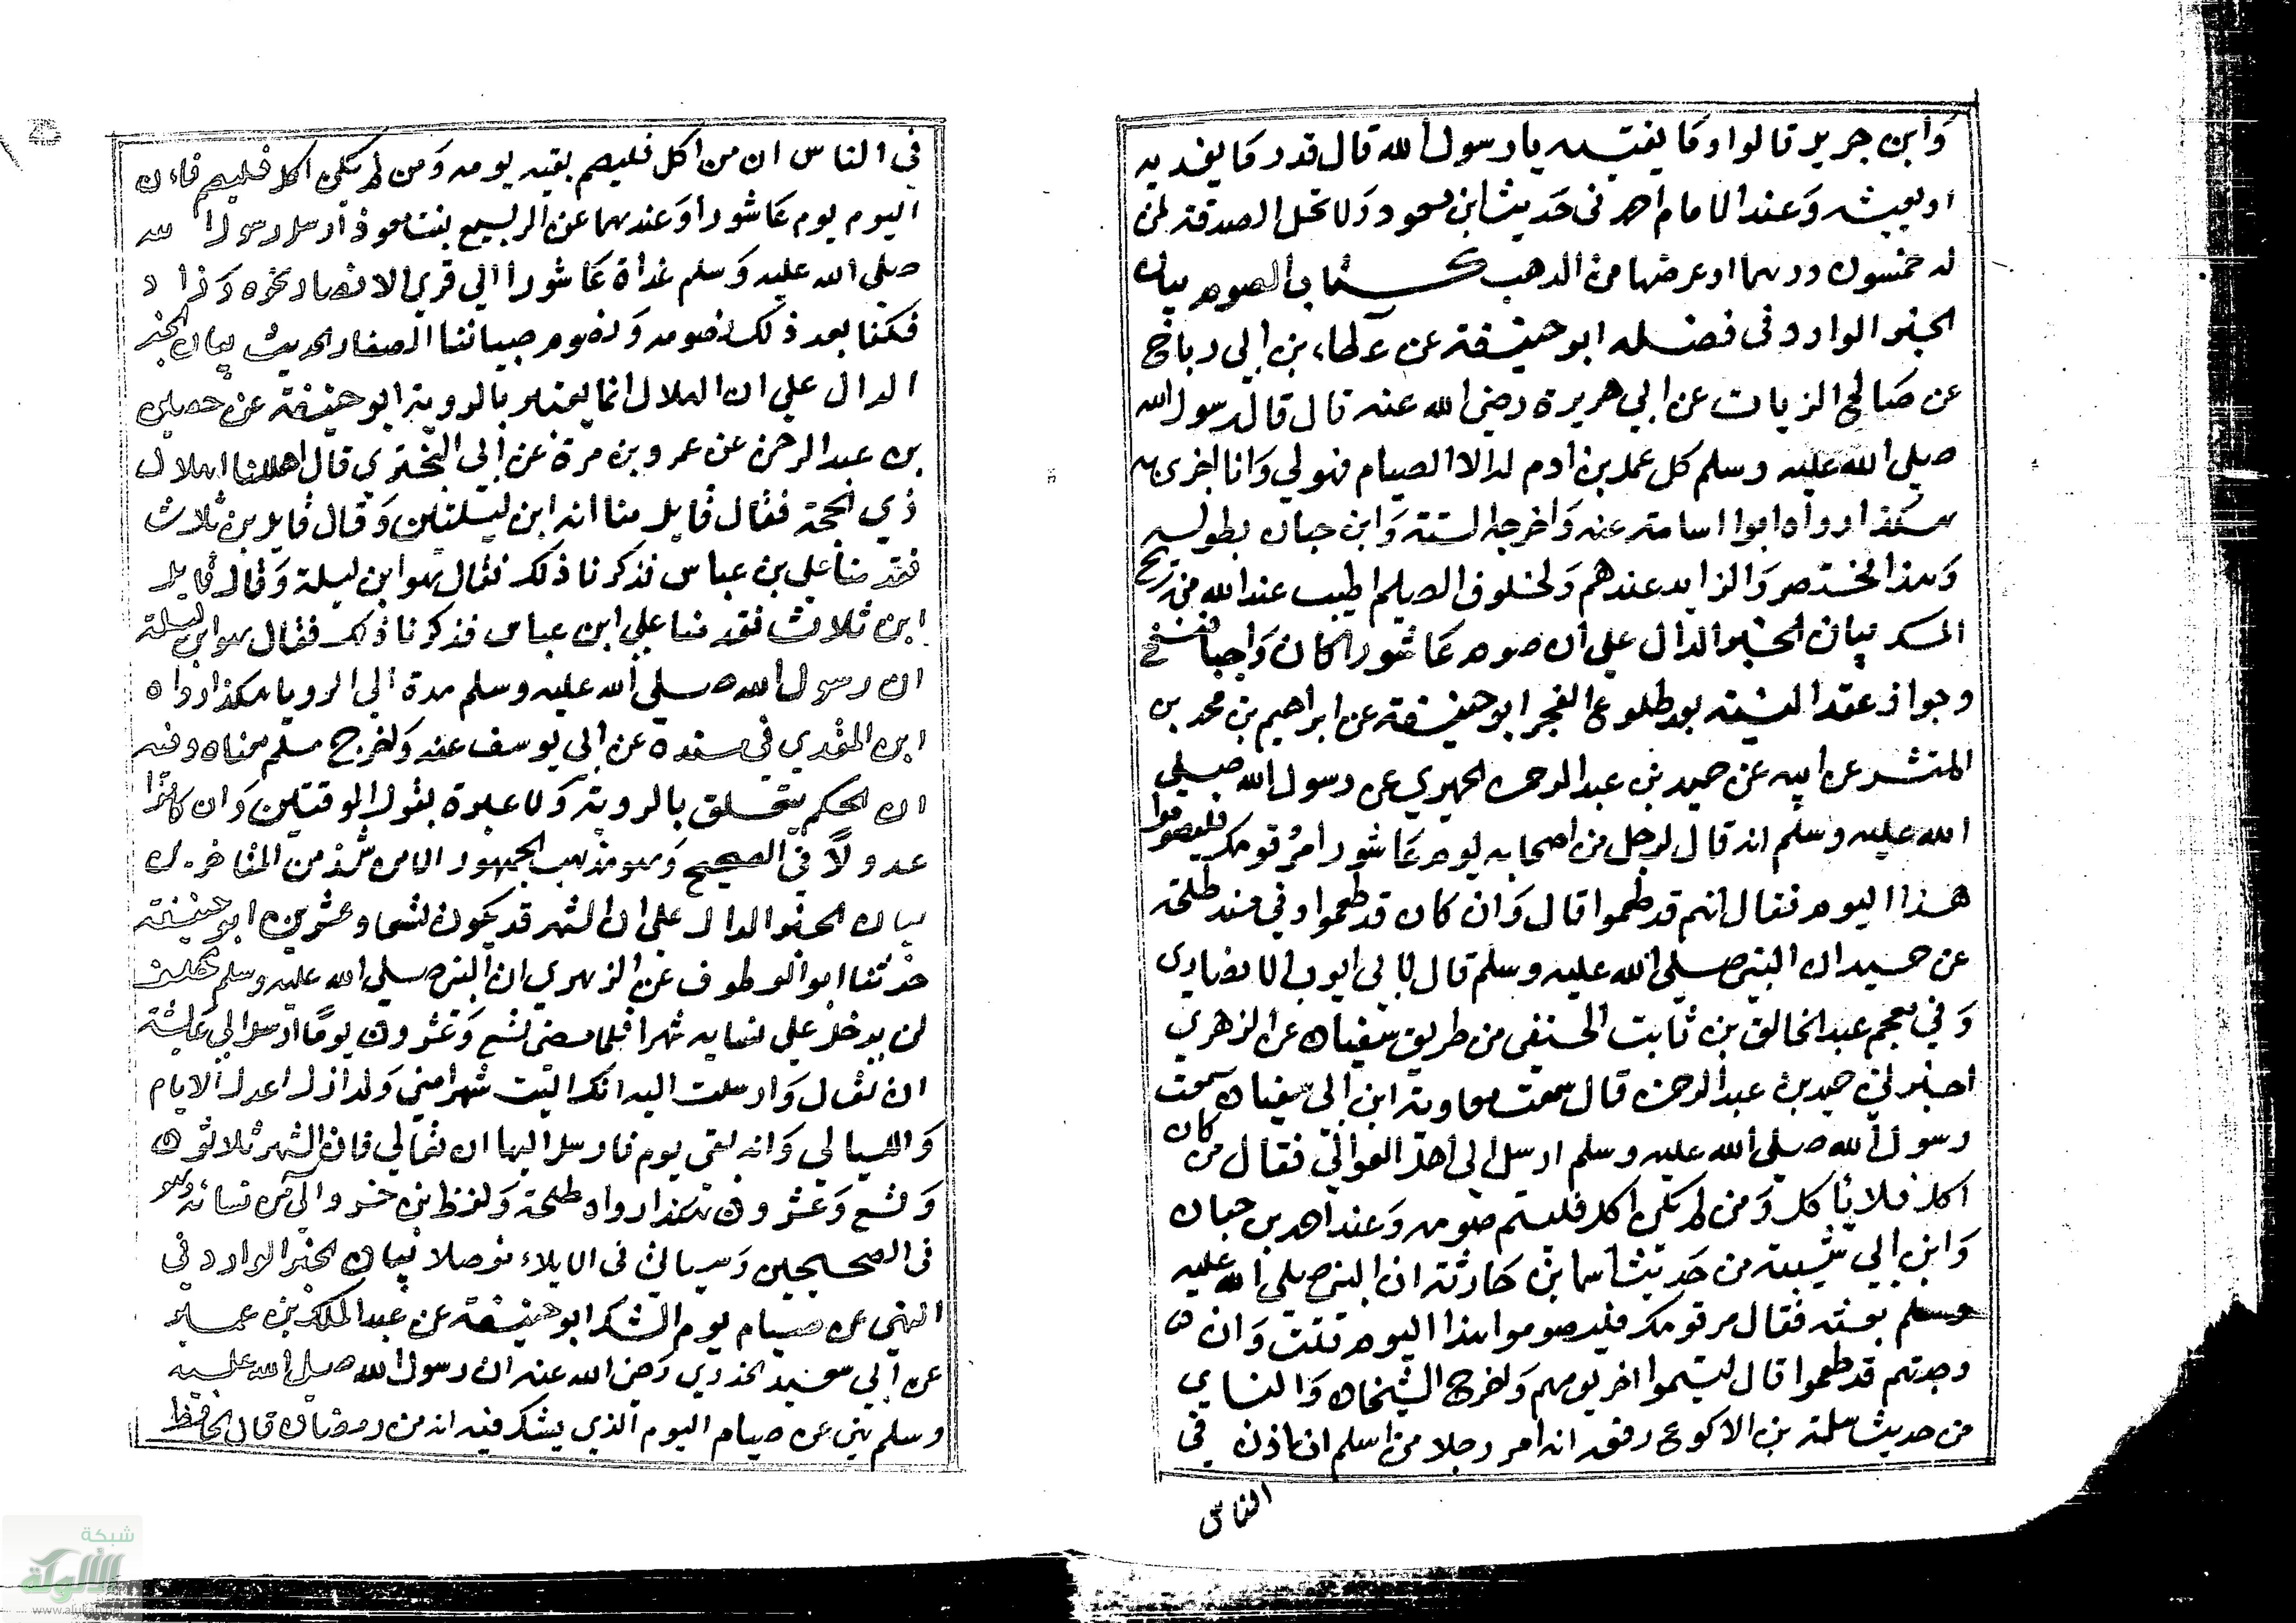 وابن جرير قالوا وما يغنيه يا رسول الله قال قدر ما يغديه
او يعيشه وعند الامام احمد في حديث ابن مسعود ولا تحل الصدقة لمن
له خمسون درهما او عرضها من الذهب كتاب الصوم بيان
الخبر الوارد في فضله ابو حنيفة عن عطاء بن ابي رباح
عن صالح الزيات عن ابي هريرة رضي الله عنه قال قال رسول الله
صلى الله عليه وسلم كل عمل بن ادم له الا الصيام فهو لي وانا اجزي به
هكذا رواه ابوا اسامة عنه واخرجه الستة وابن حبان بطوله
وهذا المختصر والزايد عندهم ولخلوف الصايم اطيب عند الله من ريح
المسك بيان الخبر الدال على ان صوم عاشورا كان واجبا فنسخ
وجواز عقد النية بعد طلوع الفجر ابو حنيفة عن ابراهيم بن محمد بن
المنتشر عن ابيه عن حميد بن عبد الرحمن الحميري عن رسول الله صلى
الله عليه وسلم انه قال لرجل من اصحابه يوم عاشورا مر قومك فليصوموا
هذا اليوم فقال انهم قد طعموا قال وان كان قد طعموا وفي مسند طلحة
عن حميد ان النبي صلى الله عليه وسلم قال لابي ايوب الانصاري
وفي معجم عبد الخالق بن ثابت الحنفي من طريق سفيان عن الزهري
اخبرني حميد بن عبد الرحمن قال سمعت معاوية ابن ابي سفيان سمعت
رسول الله صلى الله عليه وسلم ارسل الى اهل العوالي فقال من كان
اكل فلا ياكل ومن لم يكن اكل فليتم صومه وعند احمد بن حبان
وابن ابي شيبة من حديث اسما بن حارثة ان النبي صلى الله عليه
وسلم بعثه فقال مر قومك فليصوموا هذا اليوم قلت وان
وجدتهم قد طعموا قال ليتموا اخر يومهم واخرج الشيخان والنساي
من حديث سلمة بن الاكوع رفعه انه امر رجلا من اسلم ان اذن في
الناس
في الناس ان من اكل فليصم بقية يومه ومن لم يكن اكل فليصم فان
اليوم يوم عاشورا وعندهما عن الربيع بنت معوذ ارسل رسول الله
صلى الله عليه وسلم غداة عاشورا الى قرى الانصار نحوه وزاد
فكنا بعد ذلك نصومه ونصوم صبياننا الصغار الحديث بيان الخبر
الدال على ان الهلال انما يعتبر بالروية ابو حنيفة عن حصين
بن عبد الرحمن عن عمرو بن مرة عن ابي البختري قال اهللنا هلال
ذي الحجة فقال قايل منا انه ابن ليلتين وقال قايل بن ثلاث
فقدمنا على بن عباس فذكرنا ذلك فقال هو ابن ليلة وقال قايل
ابن ثلاث فقدمنا على ابن عباس فذكرنا ذلك فقال هو ابن ليلة
ان رسول الله صلى الله عليه وسلم مدة الى الرويا هكذا رواه
ابن المقري في مسنده عن ابي يوسف عنه واخرج مسلم معناه وفيه
ان الحكم يتعلق بالروية ولا عبرة بقول الموقتين وان كانوا
عدولا في الصحيح وهو مذهب الجمهور الا من شذ من المتاخرين
بيان الخبر الدال على ان الشهر قد يكون تسعا وعشرين ابو حنيفة
حدثنا ابو العطوف عن الزهري ان النبي صلى الله عليه وسلم حلف
لن يدخل على نسايه شهرا فلما مضى تسع وعشرون يوما ارسل الى عايشة
ان تعال وارسلت اليه انك اليت شهرا مني ولم ازل اعد الايام
والليالي وانه بقي يوم فارسل اليها ان تعالي فان الشهر ثلاثون
وتسع وعشرون هكذا رواه طلحة ولفظ بن خسرو الى من نسائه وهو
في الصحيحين وسياتي في الايلاء موصلا بيان الخبر الوارد في
النهي عن صيام يوم الشك ابو حنيفة عن عبد الملك بن عمير
عن ابي سعيد الخدري رضي الله عنه ان رسول الله صلى الله عليه
وسلم نهي عن صيام اليوم الذي يشك فيه انه من رمضان قال الحافظ
شبكة
الألوكة
www.alukah.net